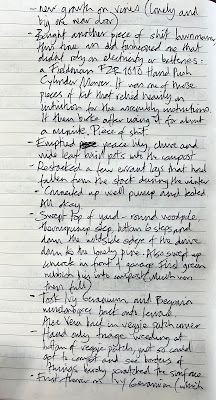 - new growth on vines (lovely and
big on new door)
- Bought another piece of shit lawnmower
This time an old fashioned one that
didn't rely on electricity or batteries:
a Fieldman FZR 1610 Hand Push
Cylinder Mower. It was one of those
pieces of kit that relied having an
intuition for the assembly instructions
It then broke after using it for about
a minute. Piece of shit.
- Emptied peace lily, clivia and
wide leaf plant pots into the compost
- Restacked a few errand logs that had
fallen down the stack during the winter
- Connected up well pump and tested
All okay
- Swept top of yard - round woodpile,
down step, bottom 6 steps and
down the outside edge of the drive
down to the lonely pine. Also swept up
in front of garage
into compost
them fall)
- Took Ivy Geranium and Begonia
back onto
Aloe Vera back in veggie patch corner
- Hand only weeding at
bottom of veggie patch, just so could
get to compost and see borders of
things. Barely scratched the surface
- First on Ivy Geranium (which